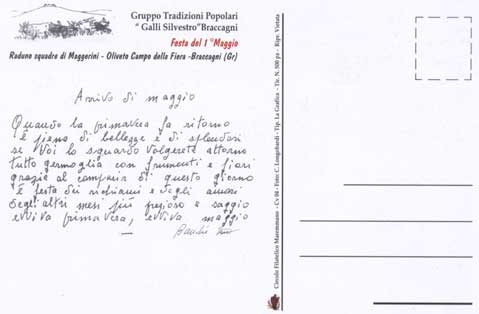 Gruppo Tradizioni Popolari
" Galli Silvestro"Braccagni
Festa del 1 °Maggio
Raduno squadre di Maggerini - Oliveto Campo della Fiera -Braccagni (Gr)
Arrivo di maggio
Quando la primavera fa ritorno
è piena di bellezze e di splendori
se Voi lo sguardo volgerete attorno
tutto germoglia con frumenti e fiori
grazie al compair di questo giorno
è festa dei richiami e degli amori
degli altri mesi più prezioso e saggio
evviva primavera, evviva maggio
Circolo Filatelico Maremmano - Cv 04 - Foto: C. Longobardi - Tip. La Grafica - Tir. N. 500 pz - Rip. Vietata